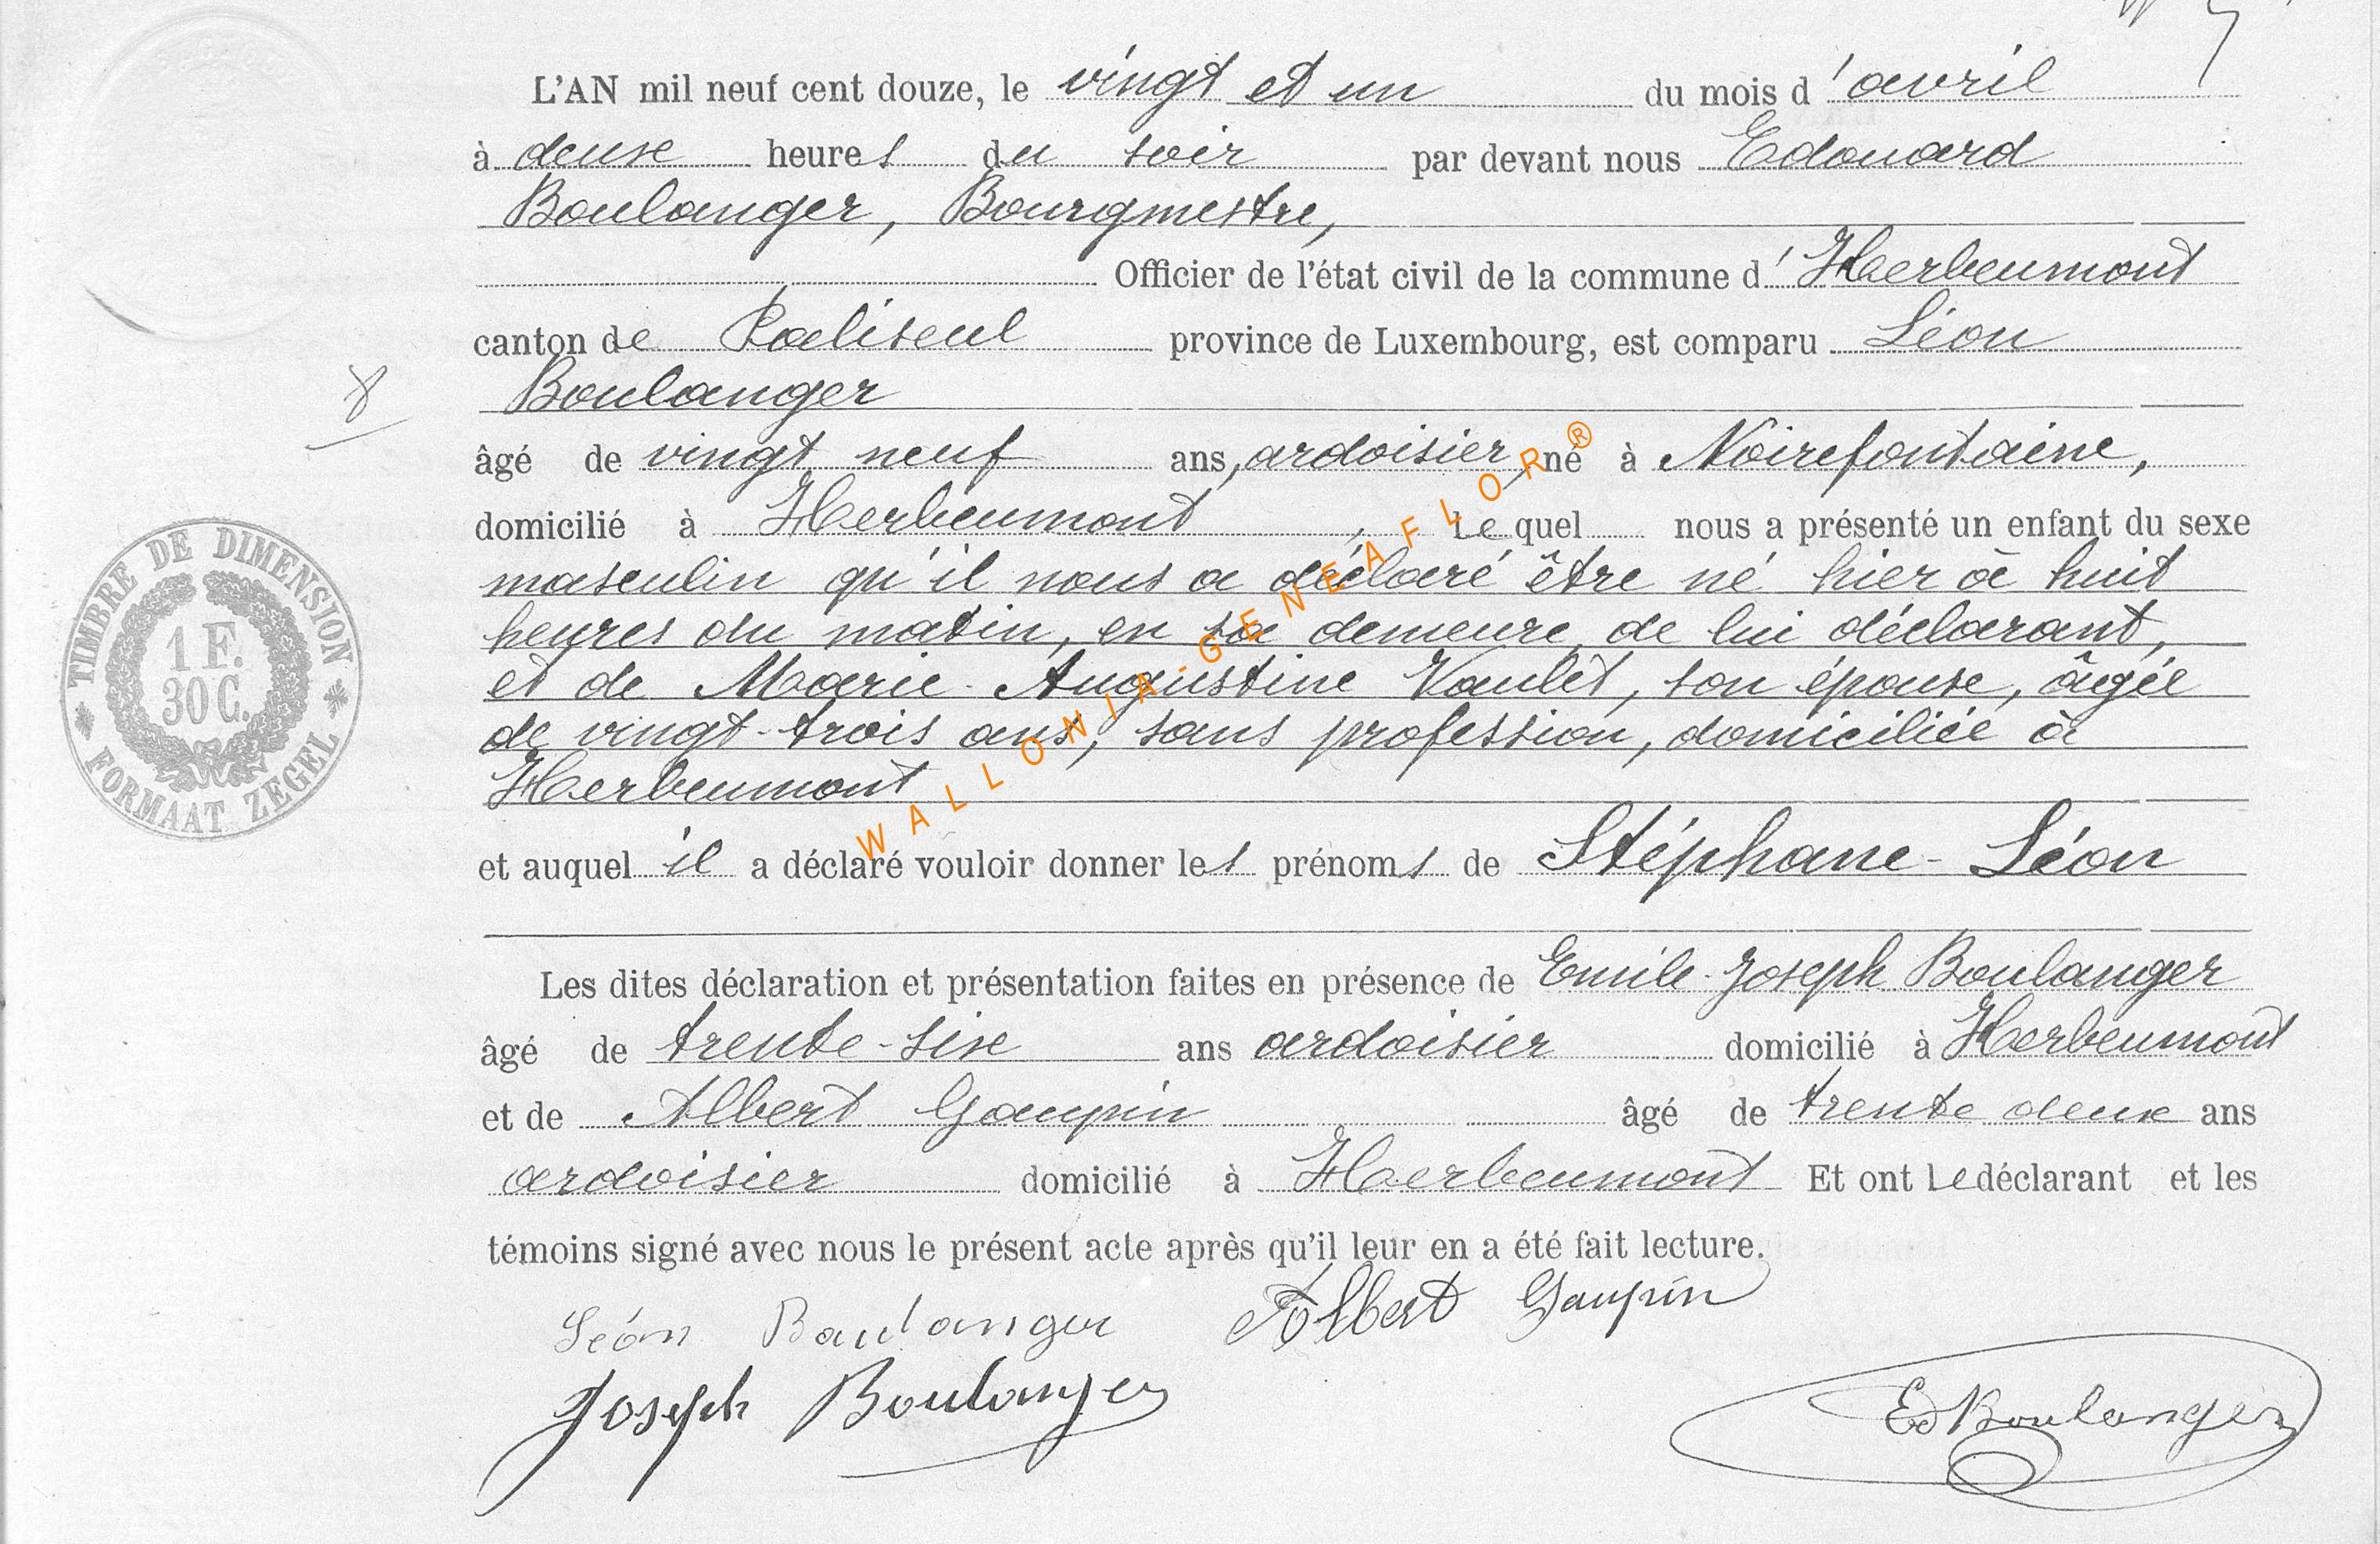 L'AN mil neuf cent douze, le vingt et un du mois d'avril
à deux heures du soir par devant nous Edouard
Boulanger, Bourgmestre,
Officier de l'état civil de la commune d'Herbeumont
canton de Paliseul province de Luxembourg, est comparu Léon
Boulanger
8
âgé de vingt neuf ans, ardoisier, né à Noirefontaine,
domicilié à Herbeumont, Lequel nous a présenté un enfant du sexe
masculin qu'il nous a déclaré être né hier à huit
heures du matin, en sa demeure, de lui déclarant,
et de Marie-Augustine Vaulet, son épouse, âgée
de vingt-trois ans, sans profession, domiciliée à
Herbeumont
TIMBRE DE DIMENSION
1 F.
30 C.
FORMAAT ZEGEL
WALLONIA-GENEAFLOR®
et auquel il a déclaré vouloir donner les prénoms de Stéphane-Léon
Les dites déclaration et présentation faites en présence de Emile-Joseph Boulanger
âgé de trente-six ans ardoisier domicilié à Herbeumont
et de Albert Gaupin âgé de trente deux ans
ardoisier domicilié à Herbeumont Et ont Le déclarant et les
témoins signé avec nous le présent acte après qu'il leur en a été fait lecture.
Léon Boulanger Albert Gaupin
Joseph Boulanger Ed Boulanger